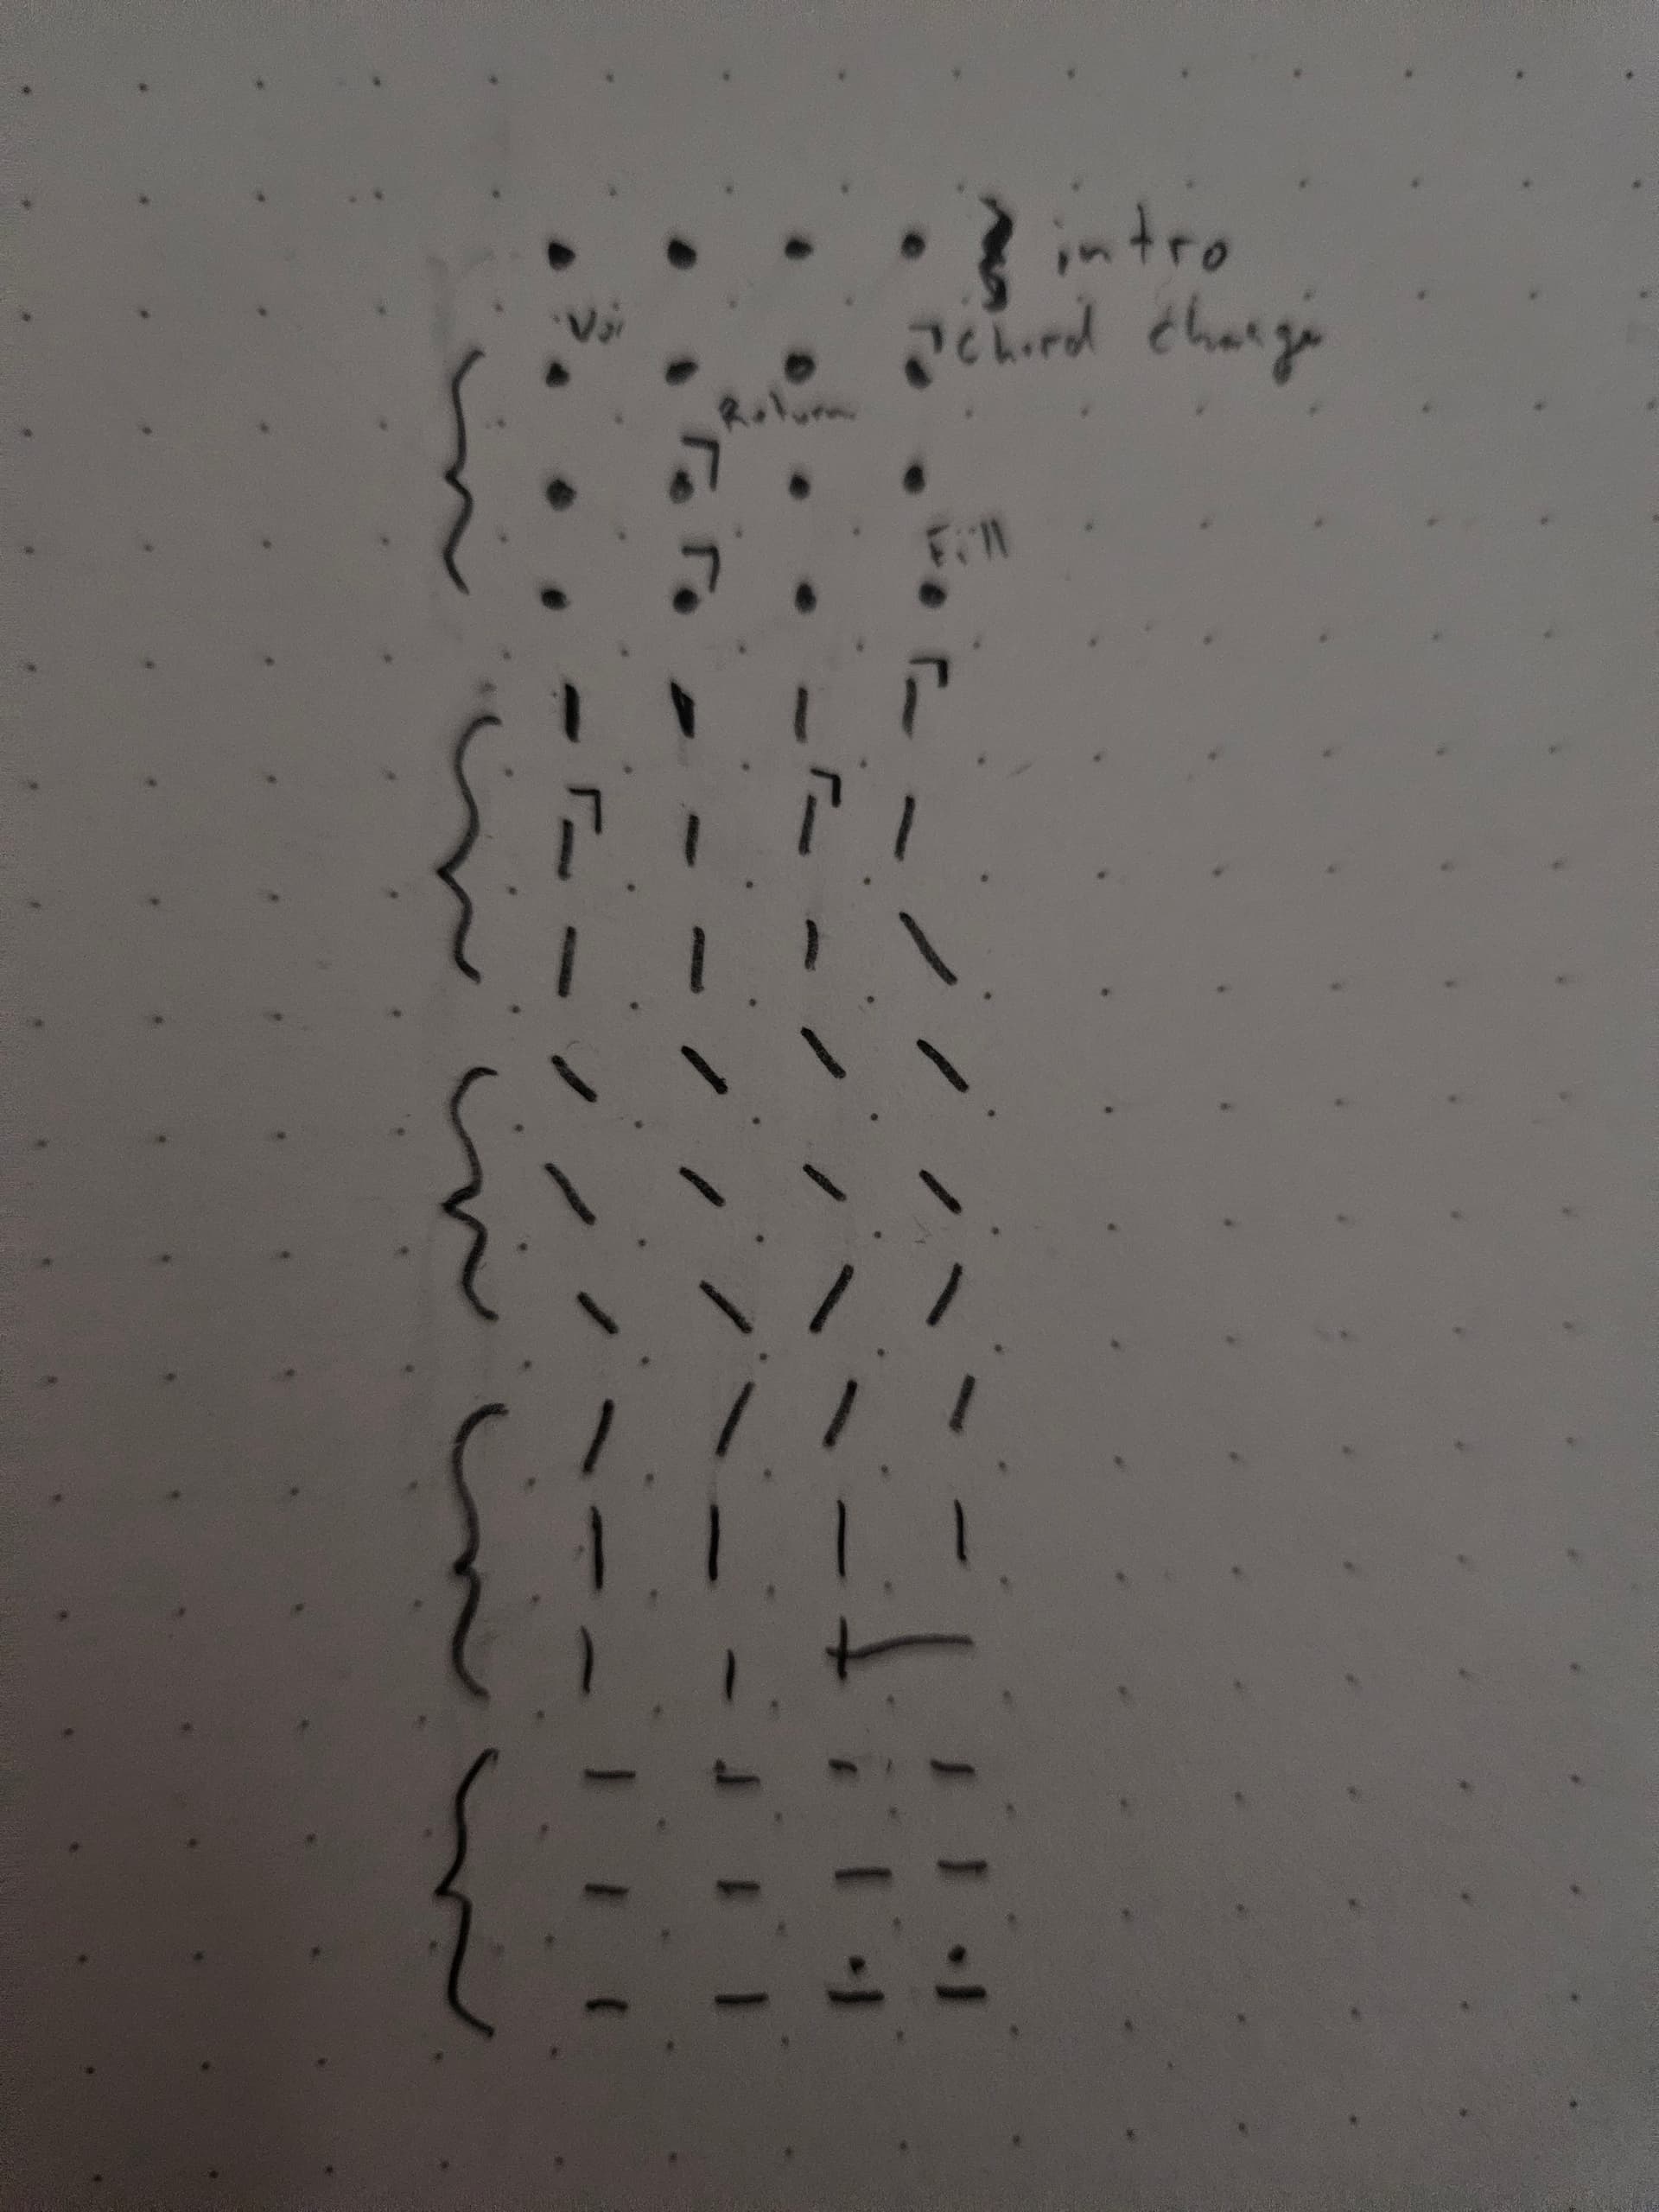 intro
Voi
Chord change
Return
Fill